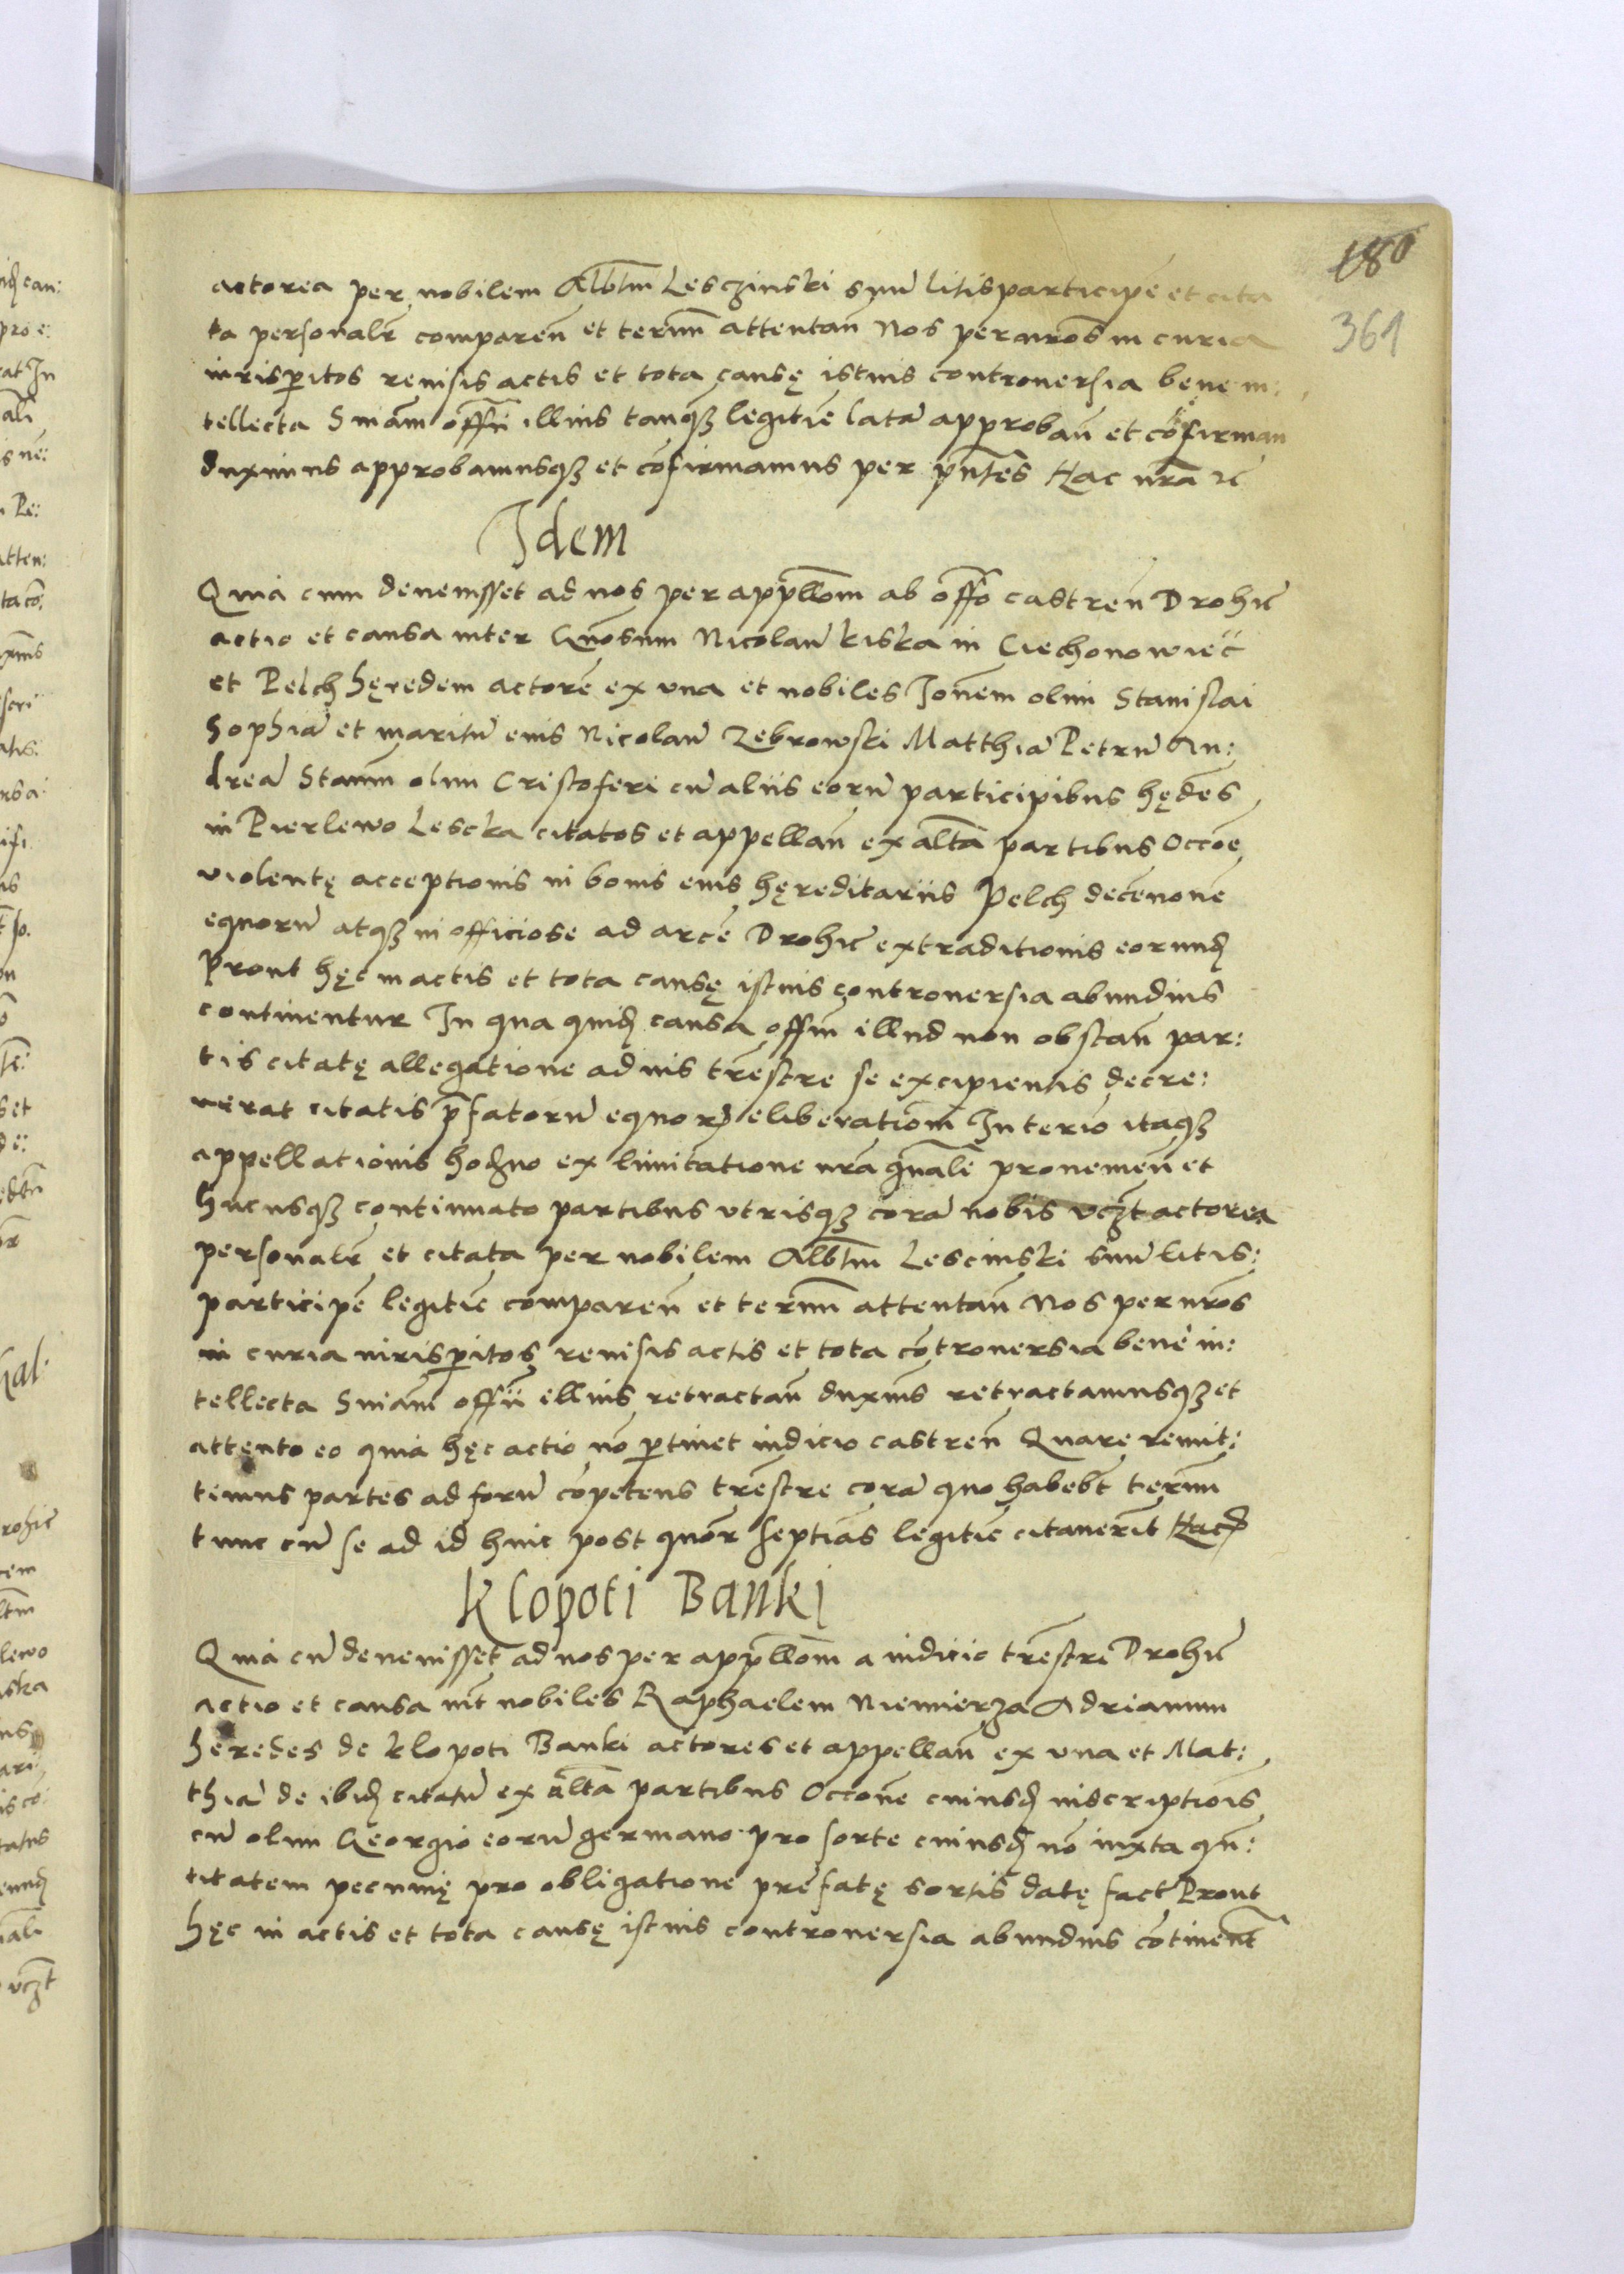 180
361
actorea per nobilem Albtm Lesczinski suu litisparticipe et cita
ta personalr comparen et termm attentan Nos per nros in curia
iurisperitos reuisis actis et tota causę istius controuersia bene in:
tellecta Sniam offii illius tanqz legitie lata approban et cofirman
duximus approbamusqz et cofirmamus per pntes Hac nra zc
Idem
Quia cum deuenisset ad nos per appllom ab offo castren Drohic
actio et causa inter Gnosum Nicolau kiska in Ciechonowiec
et Pelch hęredem actore ex vna et nobiles Jonem olim Stanislai
Sophia et maritu eius Nicolau Zebrowski Matthia Petru An:
drea Stanm olim Cristoferi cu aliis eoru participibus hędes
in Pierlewo Lescka citatos et appellan ex altra partibus Occoe
violentę acceptionis in bonis eius hęreditariis Pelch decenoue
equoru atqz in officiose ad arce Drohic extraditionis eorund
Prout hęc in actis et tota causę istius controuersia abundius
continentur In qua quid causa offm illud non obstan par:
tis citatę allegatione ad ius trestre se excipientis decre:
uerat citatis pfatoru equor eliberatiom In terio itaqz
appellationis hodzno ex limitatione nra gnale proueuien et
hucusqz continuato partibus vtrisqz cora nobis vczt actorea
personalr et citata per nobilem Albtm Lescinski suu litis:
participe legitie comparen et termm attentan Nos per nros
in curia iurisperitos reuisis actis et tota controuersia bene in:
tellecta Sniam offii illius retractan duxims retractamusqz et
attento eo quia hęc actio no ptinet iudicio castren Quare remit:
timus partes ad foru copetens trestre cora quo habebt termm
tunc cu se ad id huic post quor septias legitie citauerit Hac
Klopoti Banki
Quia cu deuenisset ad nos per appllom a iudicio trestri Drohic
actio et causa int nobiles Raphaelem Niemierza Adrianum
heredes de klopoti Banki actores et appellan ex vna et Mat:
thia de ibid citatu ex altra partibus Occone cuiusd inscriptiois
cu olim Georgio eoru germano pro sorte cuiusd no iuxta qn:
titatem pecunię pro obligatione prefatę sortis datę fact Prout
hęc in actis et tota causę istius controuersia abundius continent